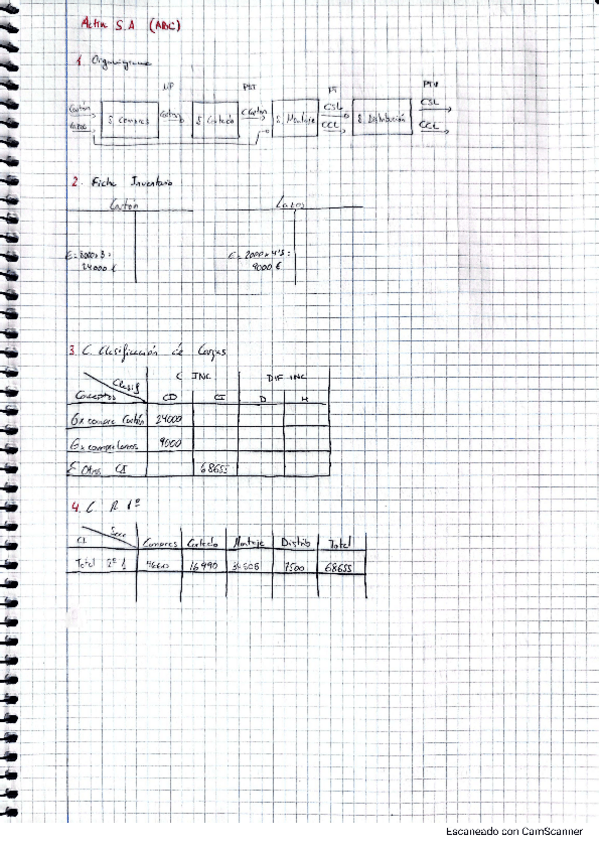 Activa S.A (ABC)
1. Organigrama
MP PST PT PTV
Cartón
S. Compras Cartón S. Cortado Cartón S. Montaje CSL CCL S. Distribución CSL CCL
2. Ficha Inventario
Cartón
E = 8000 x 3 = 24000 €
E = 2000 x 4'5 = 9000 €
3. C. Clasificación de Cargas
Clasif C INC DIF INC
Conceptos CD CI D H
Gx compra Cartón 24000
Gx compra 9000
Σ Otros CI 68655
4. C R 1º
CI Secc Compras Cortado Montaje Distrib Total
Total 16990 7500 68655
Escaneado con CamScanner